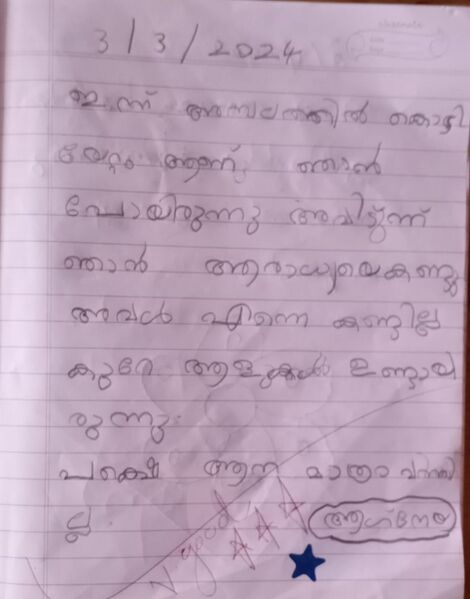 3/3/2024
ഇന്ന് അമ്പലത്തിൽ കൊടി
യേറ്റം ആണ്. ഞാൻ
പോയിരുന്നു അവിടുന്ന്
ഞാൻ ആരാധ്യയെകണ്ടു
അവൾ എന്നെ കണ്ടില്ല
കുറേ ആളുകൾ ഉണ്ടായി
രുന്നു.
പക്ഷെ ആന മാത്രം വന്നി
ല്ല.
ആഗ്നേയ
V.good